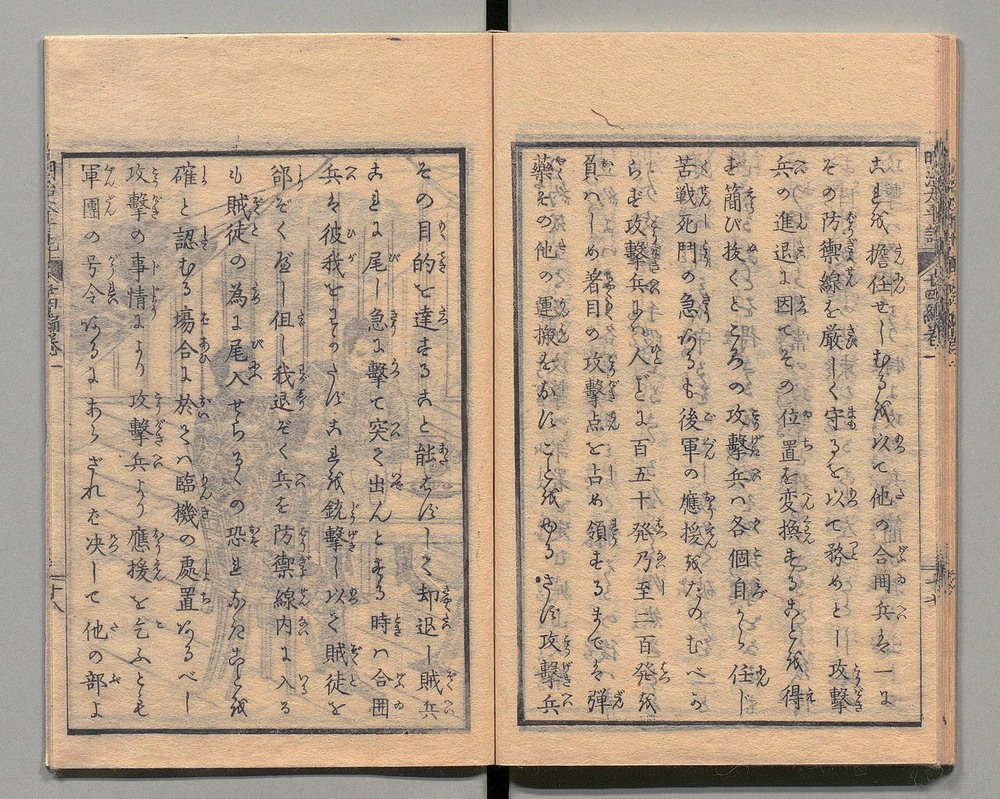 これを擔任せしむるを以て他の合囲兵は一に
その防禦線を厳しく守るを以て務めとし攻撃
兵の進退に因てその位置を変換することを得
む簡び抜くところの攻撃兵ハ各個自から任じ
苦戦死鬥の急なるも後軍の應援をたのむべか
らず攻撃兵ハ一人ごとに百五十発乃至二百発を
負ハしめ著目の攻撃点を占め領するまでは弾
藥その他の運搬をかすことをゆるさず攻撃兵
その目的を達すること能はずして却退し賊兵
これに尾し急に撃て突て出んとする時ハ合囲
兵は彼我をとはずこれを銃撃し以て賊徒を
郤ぞく度し但し我退ぞく兵を防禦線内に入る
も賊徒の為に尾入せらるゝの恐れなきことを
確と認むる塲合に於てハ臨機の處置あるべし
攻撃の事情により攻撃兵より應援を乞ふとも
軍團の号令あるにあらざれば决して他の部よ
明治太平記
廿四編巻一
十八